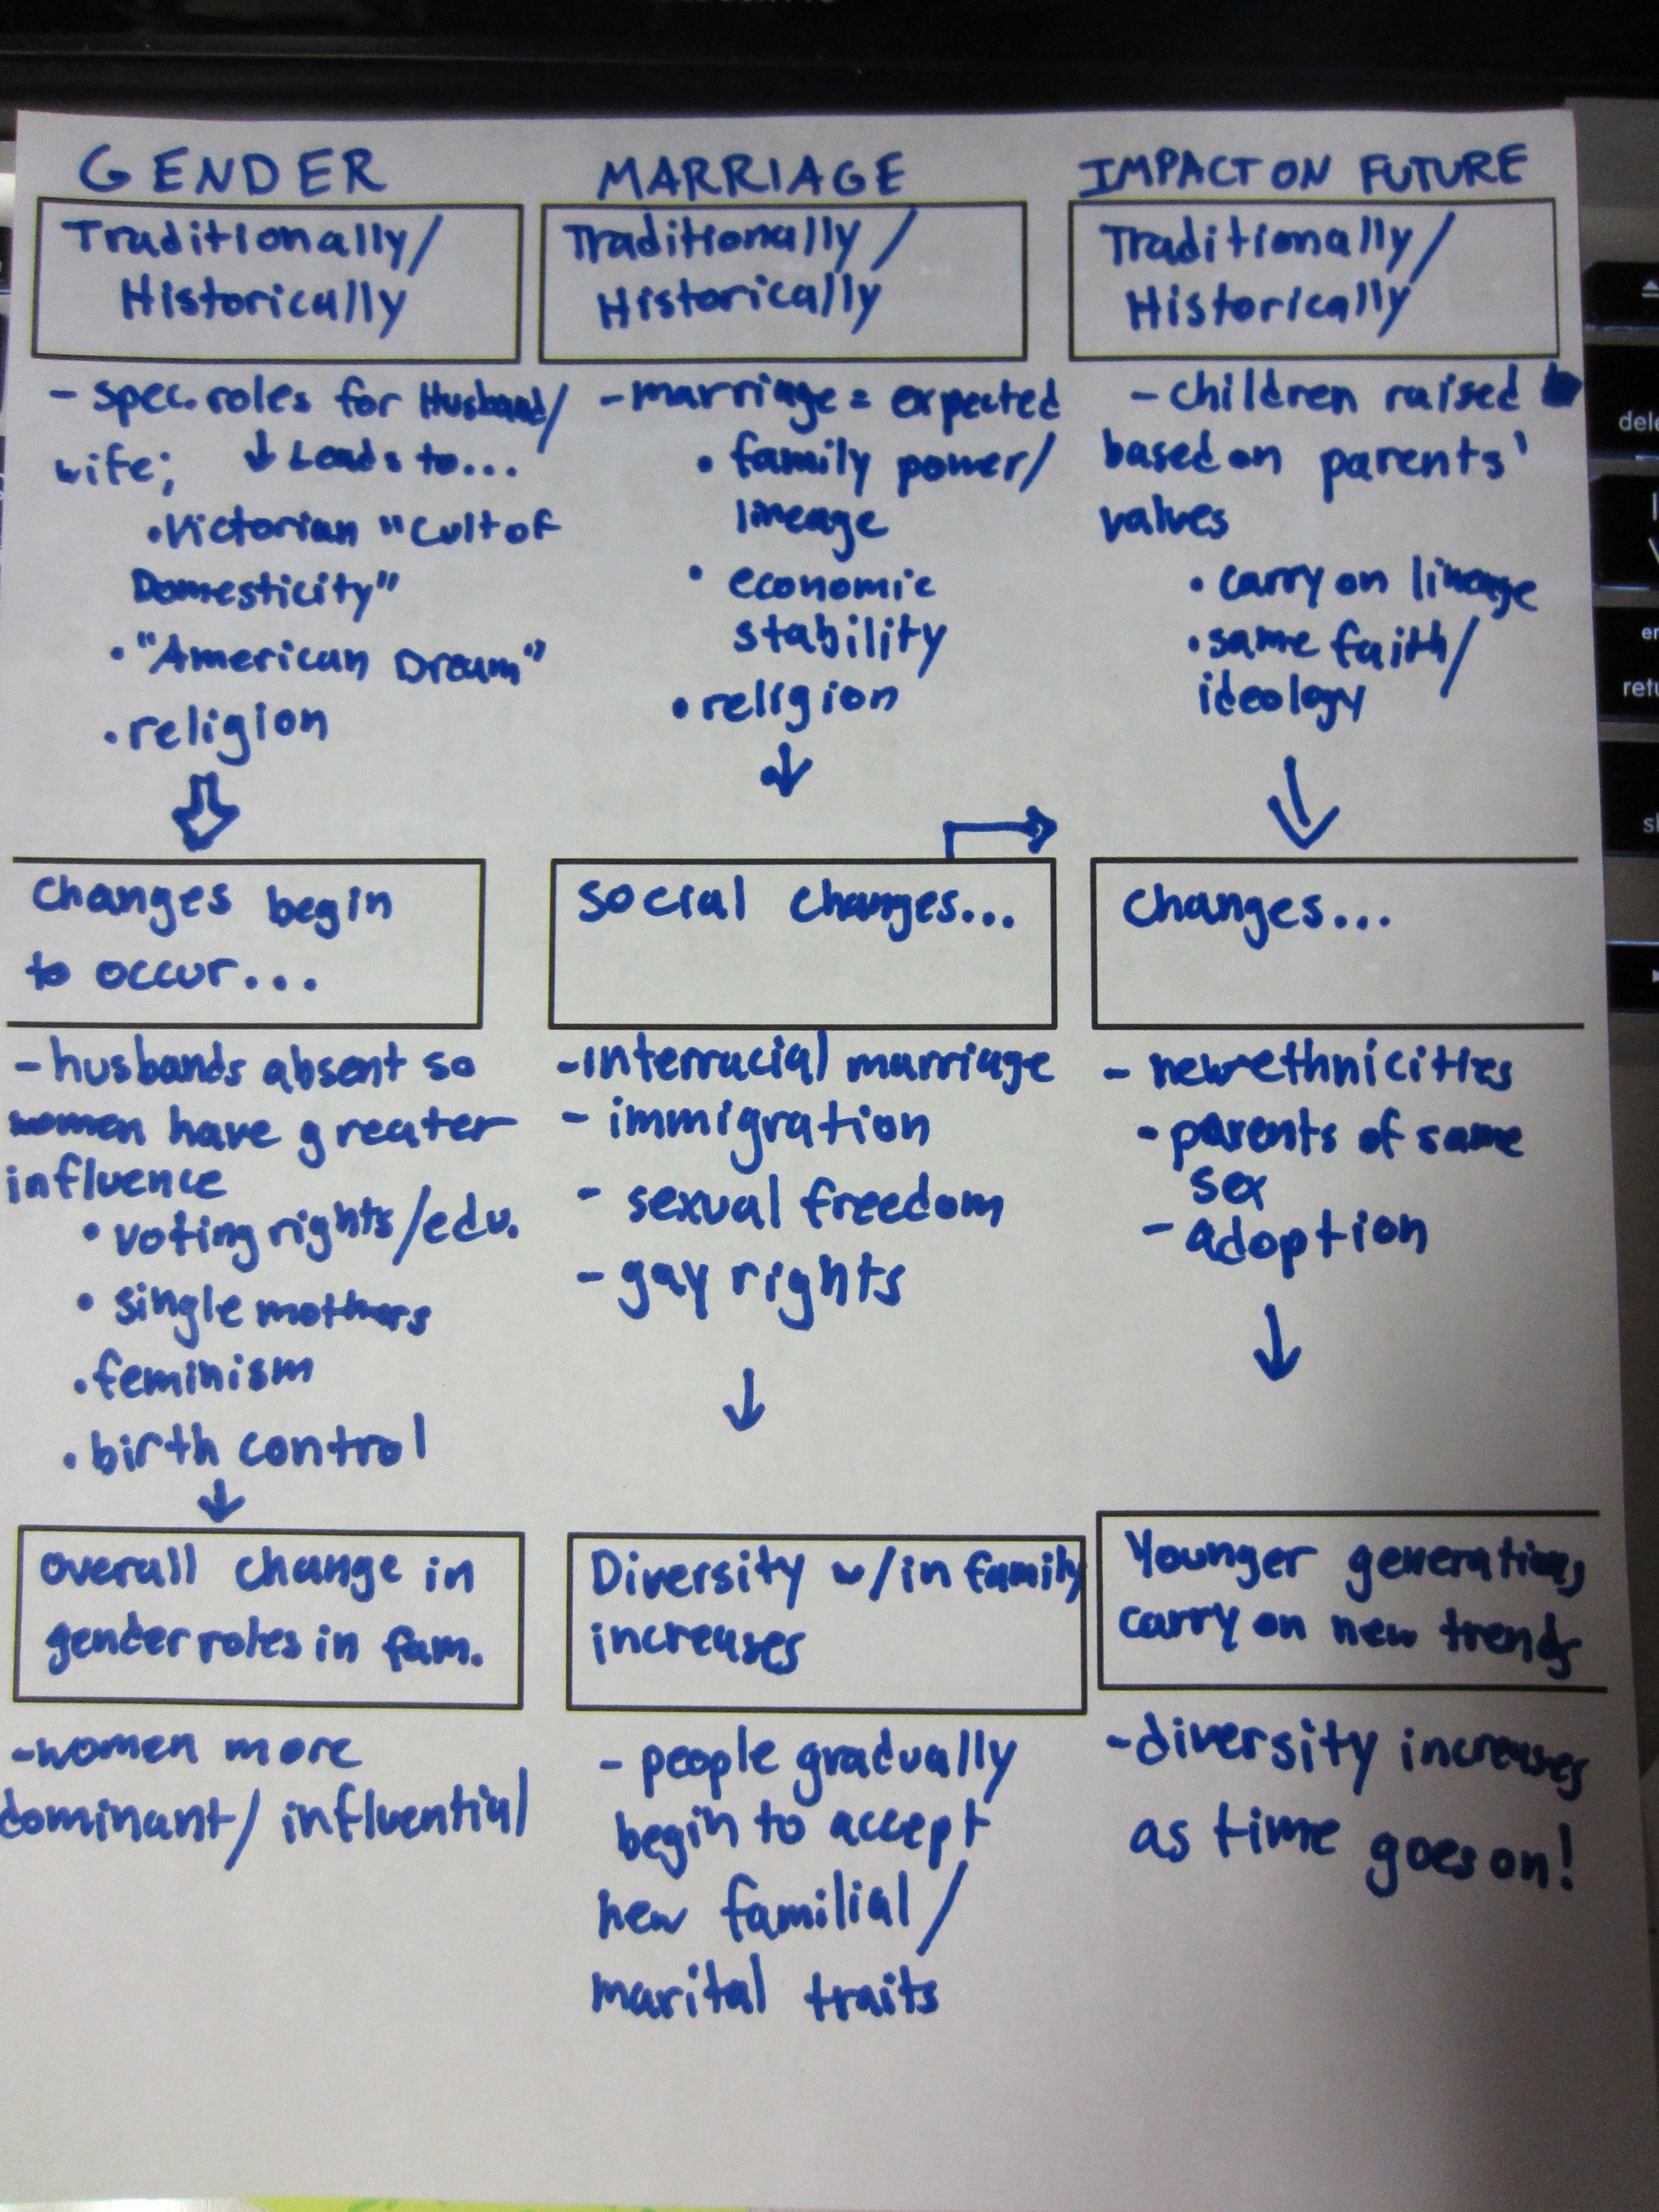 GENDER
Traditionally/
Historically
- spec. roles for Husband/
wife; ↓ Leads to...
• Victorian "Cult of
Domesticity"
• "American Dream"
• religion
Changes begin
to occur...
- husbands absent so
women have greater
influence
• voting rights/edu.
• single mothers
• feminism
• birth control
overall change in
gender roles in fam.
- women more
dominant/influential
MARRIAGE
Traditionally/
Historically
- marriage = expected
• family power/
lineage
• economic
stability
• religion
social changes...
- interracial marriage
- immigration
- sexual freedom
- gay rights
Diversity w/in family
increases
- people gradually
begin to accept
new familial/
marital traits
IMPACT ON FUTURE
Traditionally/
Historically
- children raised
based on parents'
values
• carry on lineage
• same faith/
ideology
Changes...
- new ethnicities
- parents of same
sex
- adoption
Younger generations
carry on new trends
- diversity increases
as time goes on!